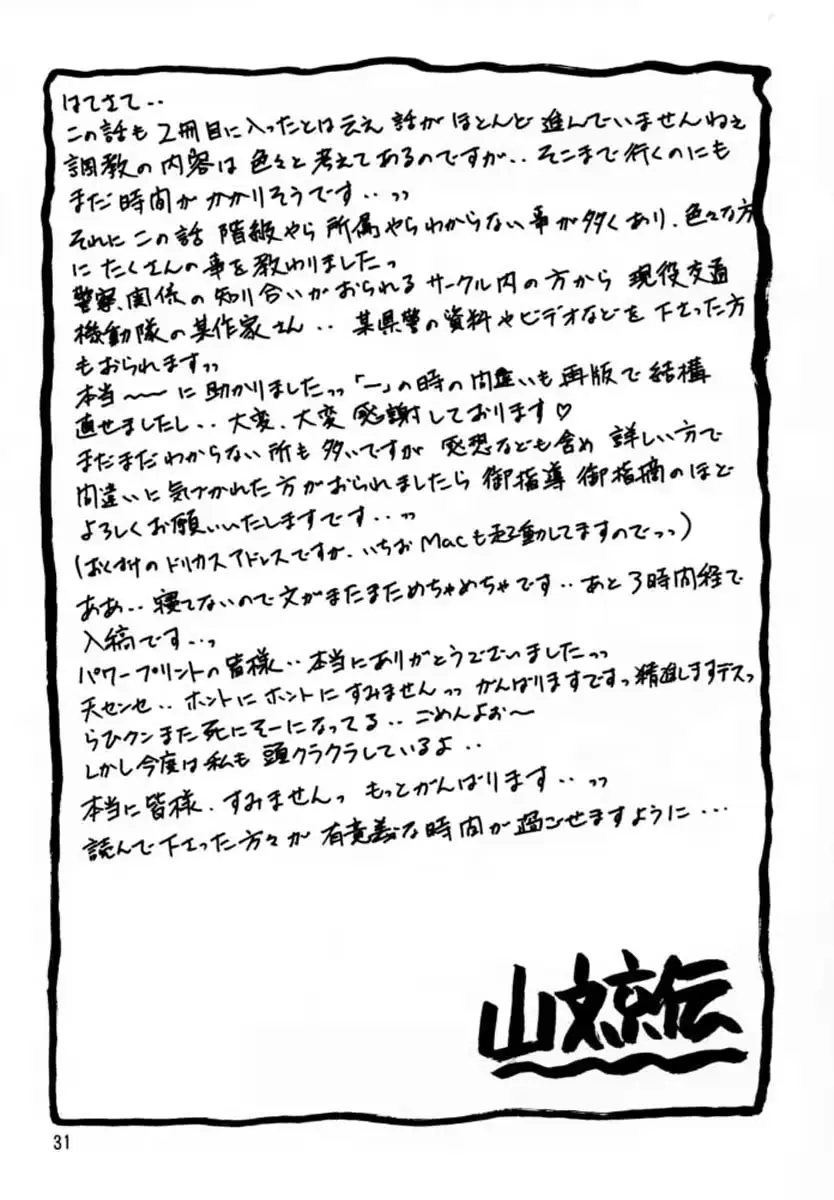 はてさて‥
この話も 2冊目に入ったとは云え 話が ほとんど 進んでいませんねぇ
調教の内容は 色々と 考えてあるのですが‥ そこまで行くのにも
まだ時間が かかりそうです‥ッ
それに この話 階級やら 所属やらわからない事が多くあり、色々な方
に たくさんの事を教わりましたっ
警察関係の知り合いがおられる サークル内の方から 現役交通
機動隊の某作家さん‥ 某県警の資料やビデオなどを下さった方
もおられますッ
本当〜〜に 助かりましたッ 「一」の時の間違いも再版で 結構
直せましたし‥ 大変、大変 感謝しております♡
まだまだわからない所も 多いですが 感想なども含め 詳しい方で
間違いに気づかれた方がおられましたら 御指導 御指摘のほど
よろしくお願いいたしますです‥ッ
(おくづけのドリカスアドレスですが、いちおMacも起動してますのでっっ)
ああ‥ 寝てないので文がまたまためちゃめちゃです‥あと3時間経で
入稿です‥っ
パワープリントの皆様‥本当にありがとうございましたっっ
天センセ‥ ホントに ホントに すみませんッ がんばりますですっ精進しますデスっ
らひクンまた死にそーになってる‥ ごめんよぉ〜
しかし今度は私も 頭クラクラしているよ‥
本当に皆様、すみませんっ もっとがんばります‥ッ
読んで下さった方々が 有意義な時間が 過ごせますように…
山文京伝
31